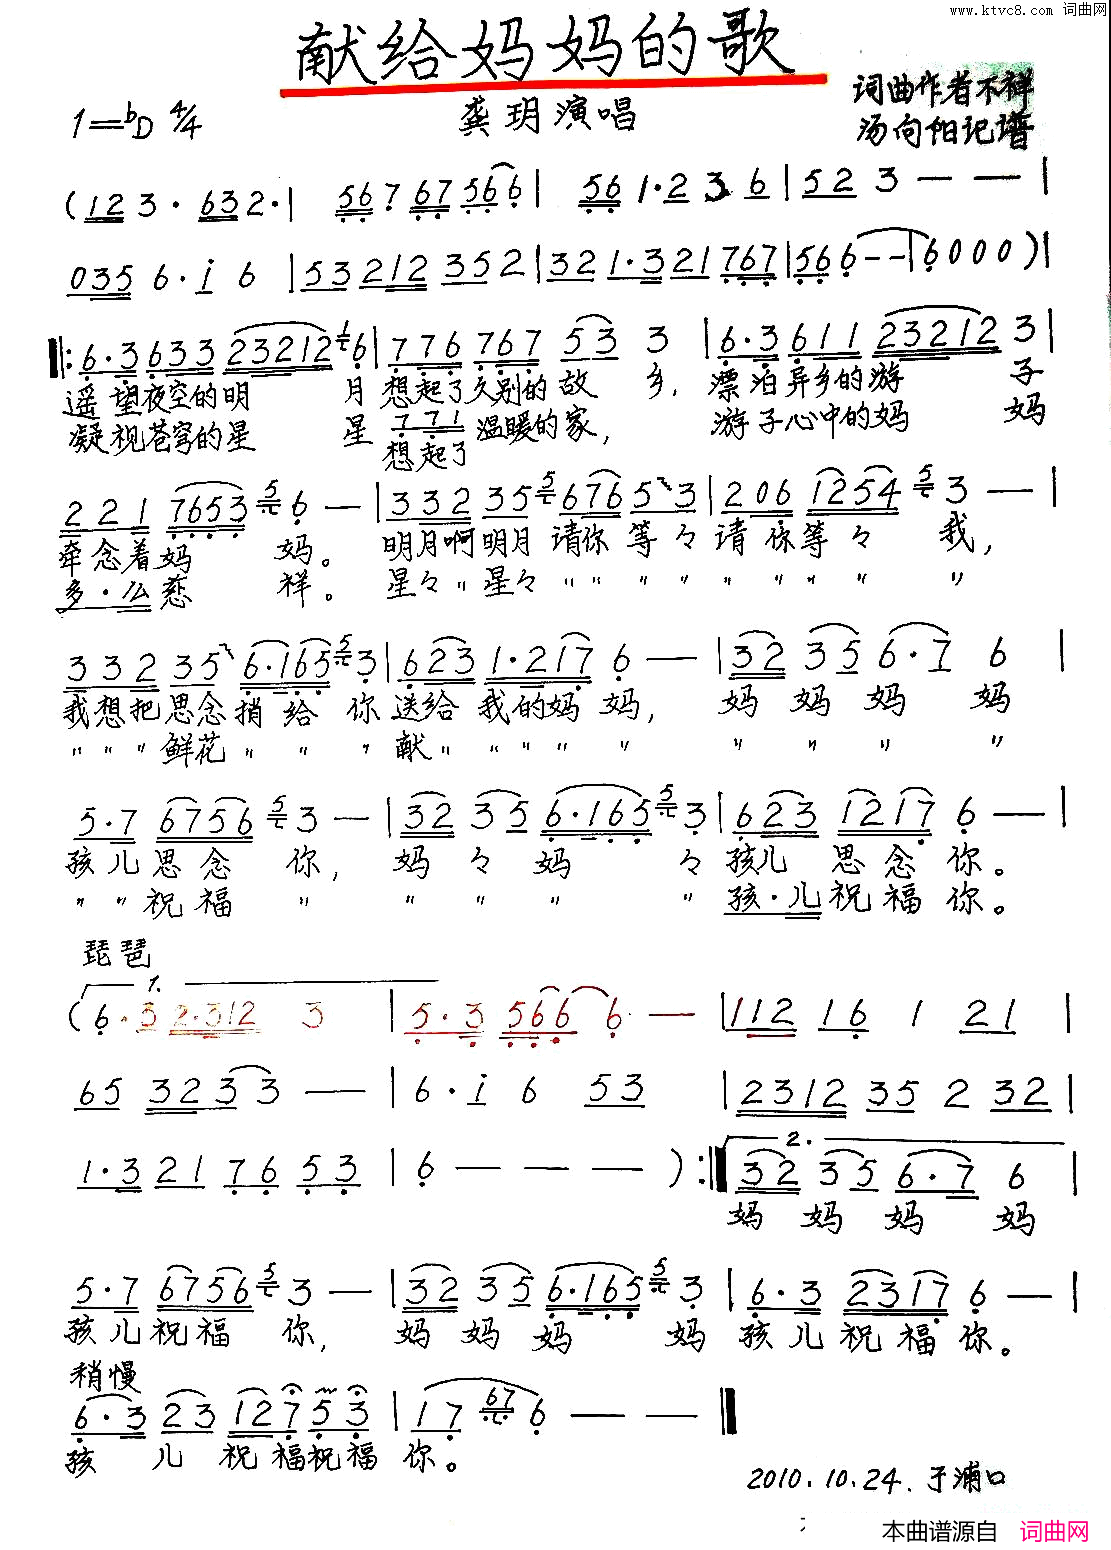 www.ktvc8.com 词曲网
献给妈妈的歌
1=bD 4/4
龚玥演唱
词曲作者不祥
汤向阳记谱
(123·632·| 56767566| 561·236|523——|
0356·i6|53212352|321·321767|566——|6000)|
6·36332321216|776767533|6·3611232123|
遥望夜空的明月想起了久别的故乡,漂泊异乡的游子
凝视苍穹的星星 771 温暖的家,游子心中的妈妈
想起了
221765356—|33235567653|206125453—|
牵念着妈妈。明月啊明月请你等々请你等々我,
多·么慈祥。星々〃星々〃〃〃〃〃〃〃〃〃
332356·16553|6231·2176—|32356·76|
我想把思念捎给你送给我的妈妈,妈妈妈妈
〃〃〃鲜花〃〃〃献〃〃〃〃〃〃〃〃〃〃
5·7675653—|32356·16553|62312176—|
孩儿思念你,妈々妈々孩儿思念你。
〃〃祝福〃〃〃〃〃孩·儿祝福你。
琵琶
1.
(6·32·3123|5·35666—|11216121|
653233——|6·i653|231235232|
1·3217653|6———):‖
2.
32356·76|
妈妈妈妈
5·7675653—|32356·16553|6·323176—|
孩儿祝福你,妈妈妈妈孩儿祝福你。
稍慢
6·32312753|17676——‖
孩儿祝福祝福你。
2010.10.24.于浦口
本曲谱源自 词曲网